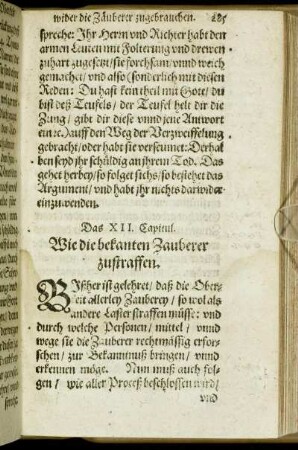 wider die Zauberer zugebrauchen. 285
spreche: Ihr Herrn vnd Richter habt den
armen Leuten mit Folterung vnd drewen
zuhart zugesetzt/ sie forchsam/ vnnd weich
gemachet/ vnd also (sonderlich mit diesen
Reden: Du hast kein theil mit Gott/ du
bist deß Teufels/ der Teufel helt dir die
Zung/ gibt dir diese vnnd jene Antwort
ein ꝛc.) auff den Weg der Verzweiffelung
gebracht/ oder habt sie verseumet: Derhal
ben seyd jhr schüldig an jhrem Tod. Das
gehet herbey/ so folget sichs/ so bestehet das
Argument/ vnd habt jhr nichts darwider
einzuwenden.
Das XII. Capitul.
Wie die bekanten Zauberer
zustraffen.
Bißher ist gelehret/ daß die Ober-
keit allerley Zauberey/ so wol als
andere Laster straffen müsse: vnd
durch welche Personen/ mittel/ vnnd
wege sie die Zauberer rechtmässig erfor-
schen/ zur Bekanntnuß bringen/ vnnd
erkennen möge. Nun muß auch fol-
gen/ wie aller Proceß beschlossen wird/
vnd